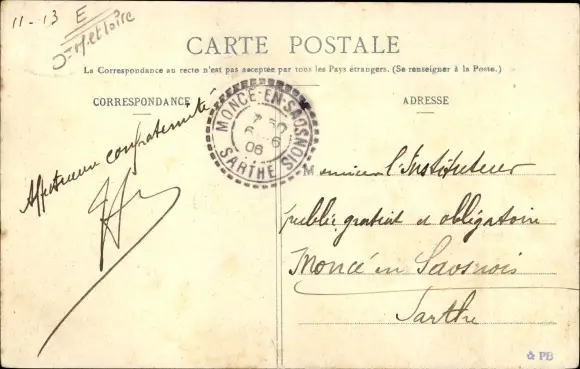 11-13 E
CARTE POSTALE
La Correspondance au recto n'est pas acceptée par tous les Pays étrangers. (Se renseigner à la Poste.)
CORRESPONDANCE
ADRESSE
MONCÉ-EN-SAOSNOIS
7 50
6 6
06
SARTHE
confraternité
Monsieur l'Instituteur
public gratuit et obligatoire
Moncé en Saosnois
Sarthe
PB